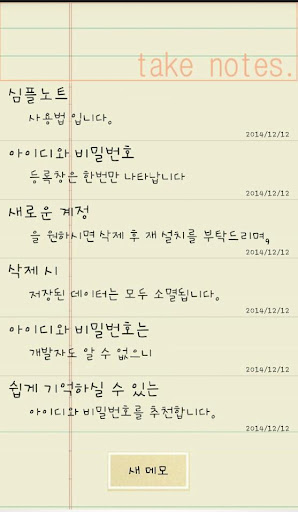 take notes.
심플노트
사용법 입니다.
2014/12/12
아이디와 비밀번호
등록창은 한번만 나타납니다
2014/12/12
새로운 계정
을 원하시면 삭제 후 재 설치를 부탁드리며,
2014/12/12
삭제 시
저장된 데이터는 모두 소멸됩니다.
2014/12/12
아이디와 비밀번호는
개발자도 알 수 없으니
2014/12/12
쉽게 기억하실 수 있는
아이디와 비밀번호를 추천합니다.
2014/12/12
새 메모